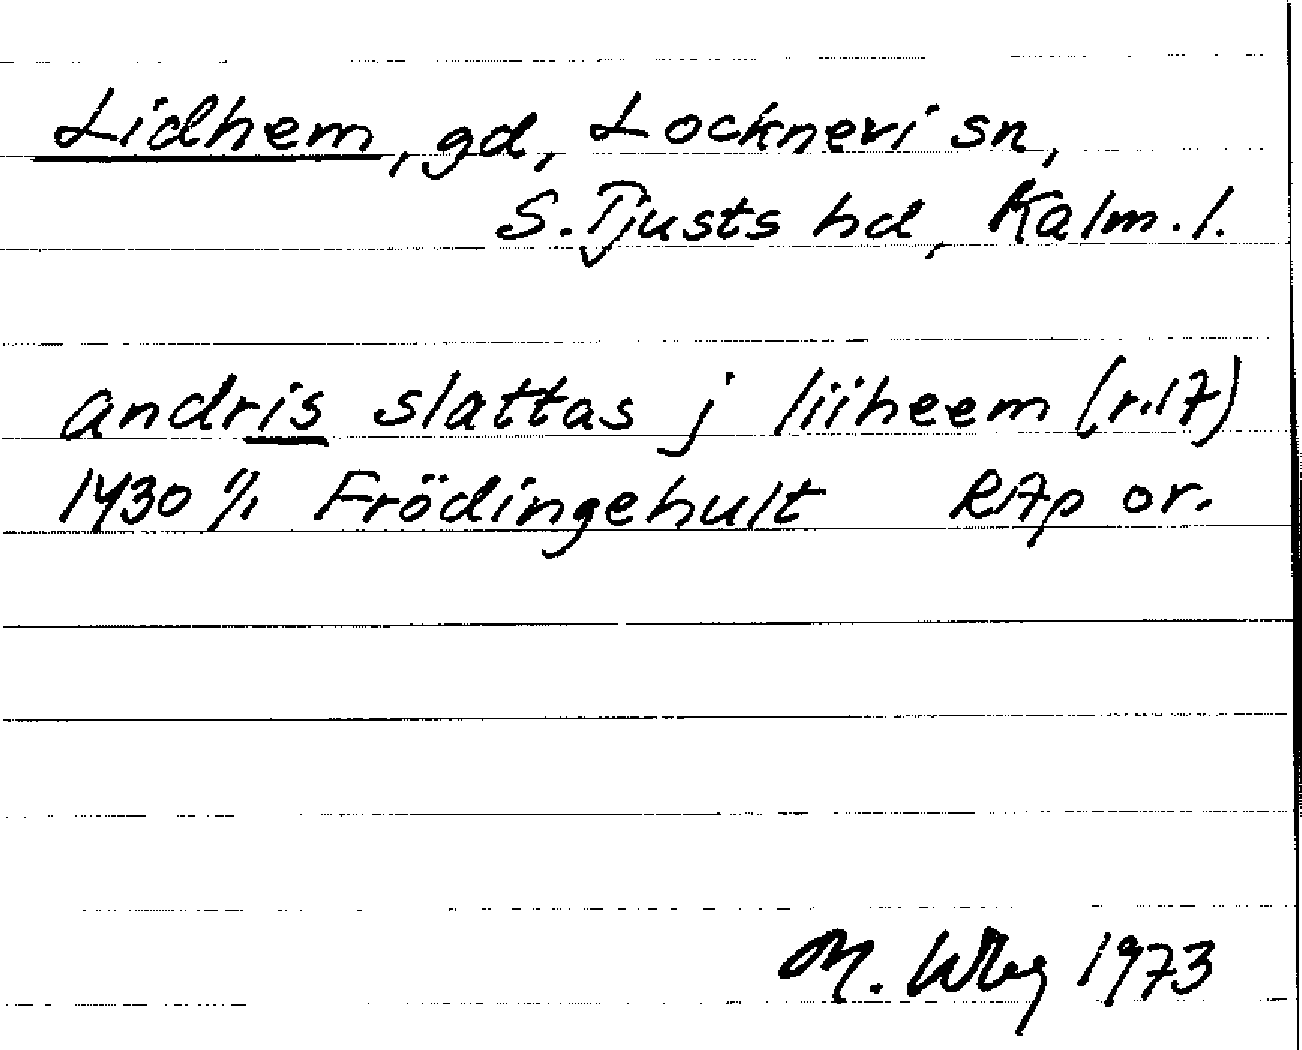 Lidhem, gd, Locknevi sn,
S. Tjusts hd, Kalm. l.
andris slattas j liiheem (r. 17)
1430 Frödingehult RAp or.
M. Wbg 1973